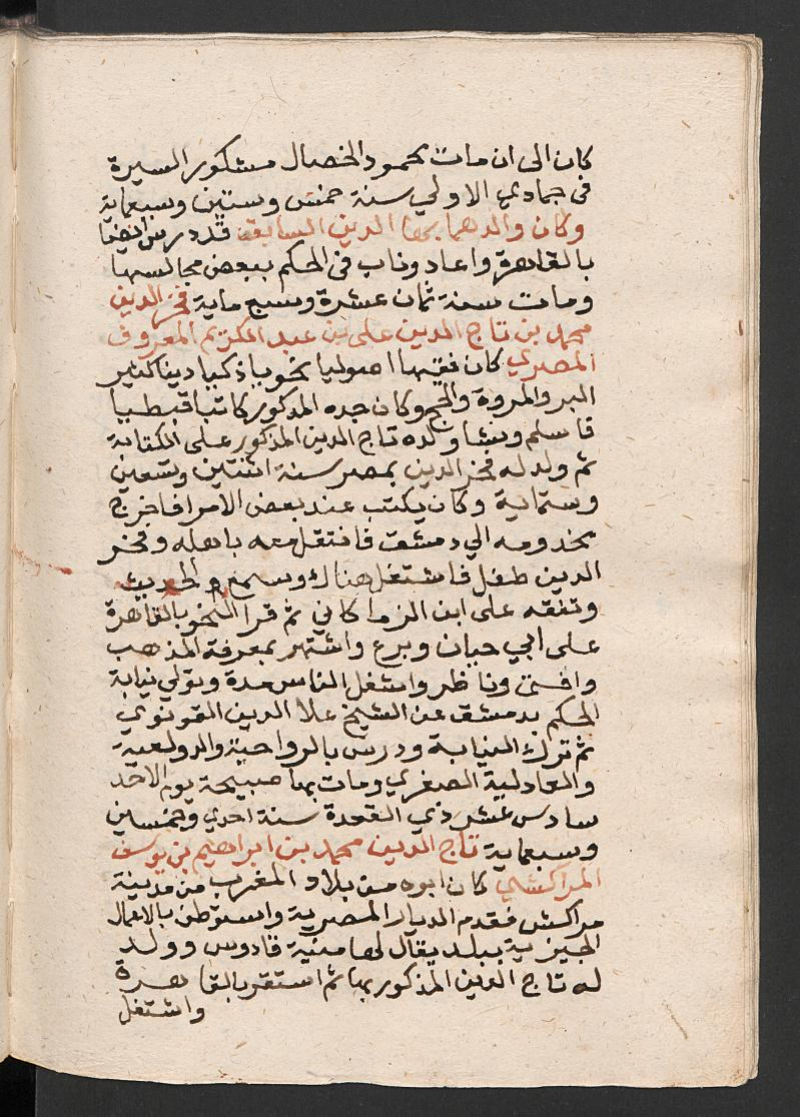 كان الى ان مات محمود الخصال مشكور السيرة
فى جمادي الاولي سنة خمس وستين وسبعماية
وكان والدهما بها الدين السابق قد درس ايضا
بالقاهرة واعاد وناب فى الحكم ببعض مجالسها
ومات سنة ثمان عشرة وسبع ماية فخر الدين
محمد بن تاج الدين على بن عبد الكريم المعروف
المصري كان فقيها اصوليا نحويا ذكيا دينا كثير
البر والمروة والحج وكان جده المذكور كاتبا قبطيا
فاسلم ونشا ولده تاج الدين المذكور على الكتابة
ثم ولد له فخر الدين بمصر سنة اثنتين وتسعين
وستماية وكان يكتب عند بعض الامرا فاخرج
مخدومه الي دمشق فانتقل معه باهله وفخر
الدين طفل فاشتغل هناك وسمع الحديث
وتفقه على ابن الزملكاني ثم قرا النحو بالقاهرة
على ابي حيان وبرع واشتهر بمعرفة المذهب
وافتى وناظر واشغل الناس مدة وتولي نيابة
الحكم بدمشق عن الشيخ علا الدين القونوي
ثم ترك النيابة ودرس بالرواحية والدولعية
والعادلية الصغري ومات بها صبيحة يوم الاحد
سادس عشر ذي القعدة سنة احدي وخمسين
وسبعماية تاج الدين محمد بن ابراهيم بن يوسف
المراكشي كان ابوه من بلاد المغرب من مدينة
مراكش فقدم الديار المصرية واستوطن بالاعمال
الجيزية ببلد يقال لها منية قادوس وولد
له تاج الدين المذكور بها ثم استقر بالقاهرة
واشتغل